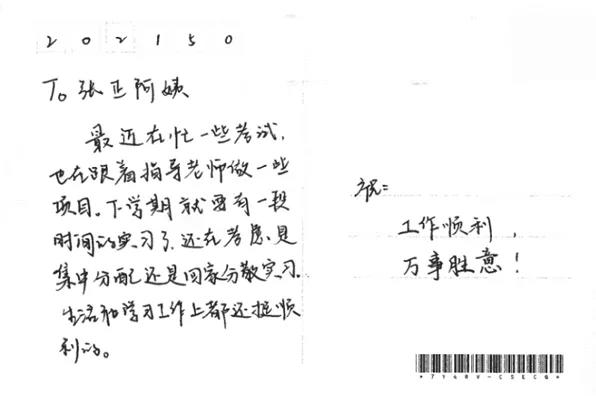 202150
To 张正阿姨
最近在忙一些考试,
也在跟着指导老师做一些
项目。下学期就要有一段
时间的实习了,还在考虑是
集中分配还是回家分散实习.
生活和学习工作上都还挺顺
利的。
祝:
工作顺利,
万事胜意!
*7148V-CSECQ*